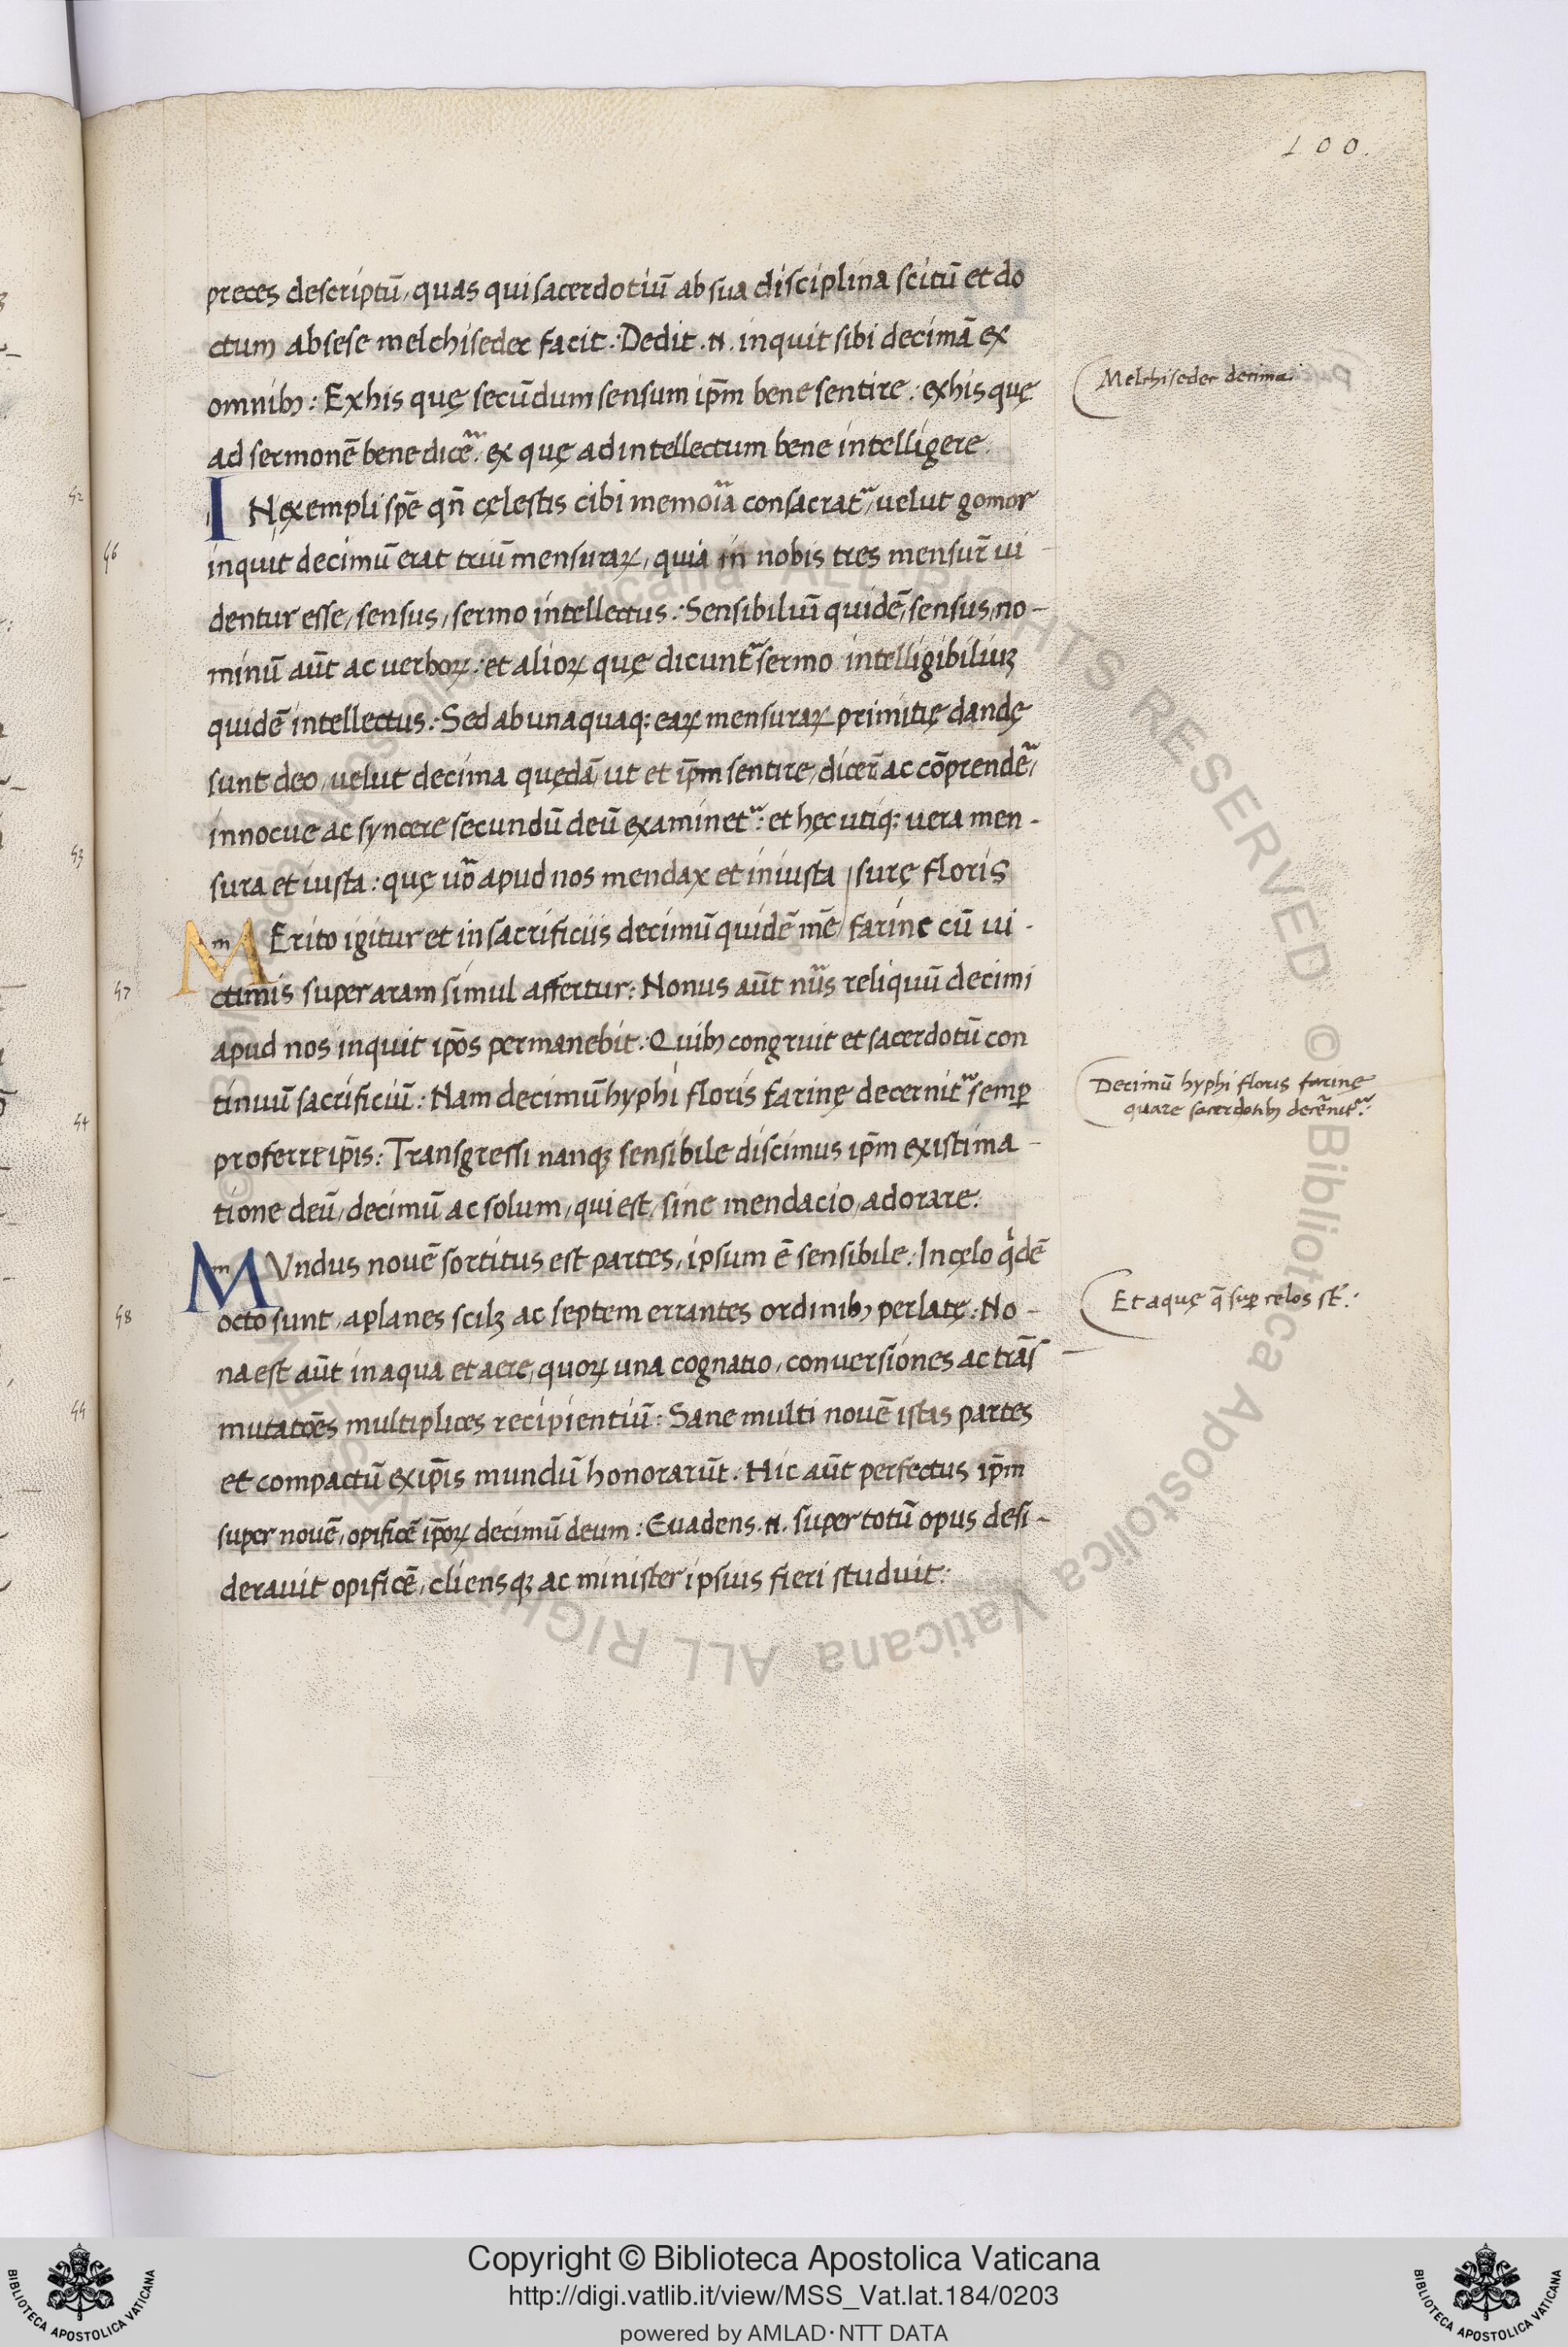 100.
preces descriptū, quas qui sacerdotiū ab sua disciplina scitū et do
ctum ab sese melchisedec facit: Dedit .n. inquit sibi decimā ex
omnibꝫ: Ex his quę secūdum sensum ip̄m bene sentire: ex his quę
ad sermonē bene dicē: ex quę ad intellectum bene intelligere.
IN exempli sp̄e qn̄ cęlestis cibi memoīa consacrat̄, velut gomor
inquit decimū erat triū mensuraꝝ, quia in nobis tres mensur̄ vi
dentur esse, sensus, sermo intellectus: Sensibiliū quidē, sensus, no-
minū aūt ac verboꝝ: et alioꝝ quę dicunt̄ sermo intelligibiliuꝫ
quidē intellectus: Sed ab unaquaq: eaꝝ mensuraꝝ primitię dandę
sunt deo, velut decima quędā, ut et ip̄m sentire, dicer̄ ac cōprendē,
innocue ac syncere secundū deū examinet̄: et hęc utiq: vera men-
sura et iusta: quę uō apud nos mendax et iniusta / surę floris
MErito igitur et in sacrificiis decimū quidē mē / farine cū vi-
ctimis super aram simul affertur: Nonus aūt nūs reliquū decimi
apud nos inquit ip̄os permanebit: Quibꝫ congruit et sacerdotū con
tinuū sacrificiū: Nam decimū hyphi floris farinę decernit̄ semꝑ
proferre ip̄is: Transgressi nanqꝫ sensibile discimus ip̄m existima-
tione deū, decimū ac solum, qui est, sine mendacio, adorare:
MUndus novē sortitus est partes, ipsum ē sensibile: In cęlo qͥdē
octo sunt, aplanes scilꝫ ac septem errantes ordinibꝫ perlatę: No-
na est aūt in aqua et aere, quoꝝ una cognatio, conversiones ac trās
mutatōes multiplices recipientiū: Sane multi novē istas partes
et compactū ex ip̄is mundū honorarūt. Hic aūt perfectus ip̄m
super novē, opificē ip̄oꝝ decimū deum: Evadens .n. super totū opus desi-
deravit opificē, cliensqꝫ ac minister ipsius fieri studuit:
Melchisedec decima:
Decimū hyphi floris farinę
quare sacerdotibꝫ decērnit̄:
Et aquę q̄ suꝑ celos st̄:
52
56
53
57
54
58
55
© Biblioteca Apostolica Vaticana ALL RIGHTS RESERVED
Copyright © Biblioteca Apostolica Vaticana
http://digi.vatlib.it/view/MSS_Vat.lat.184/0203
powered by AMLAD·NTT DATA
BIBLIOTECA APOSTOLICA VATICANA
BIBLIOTECA APOSTOLICA VATICANA